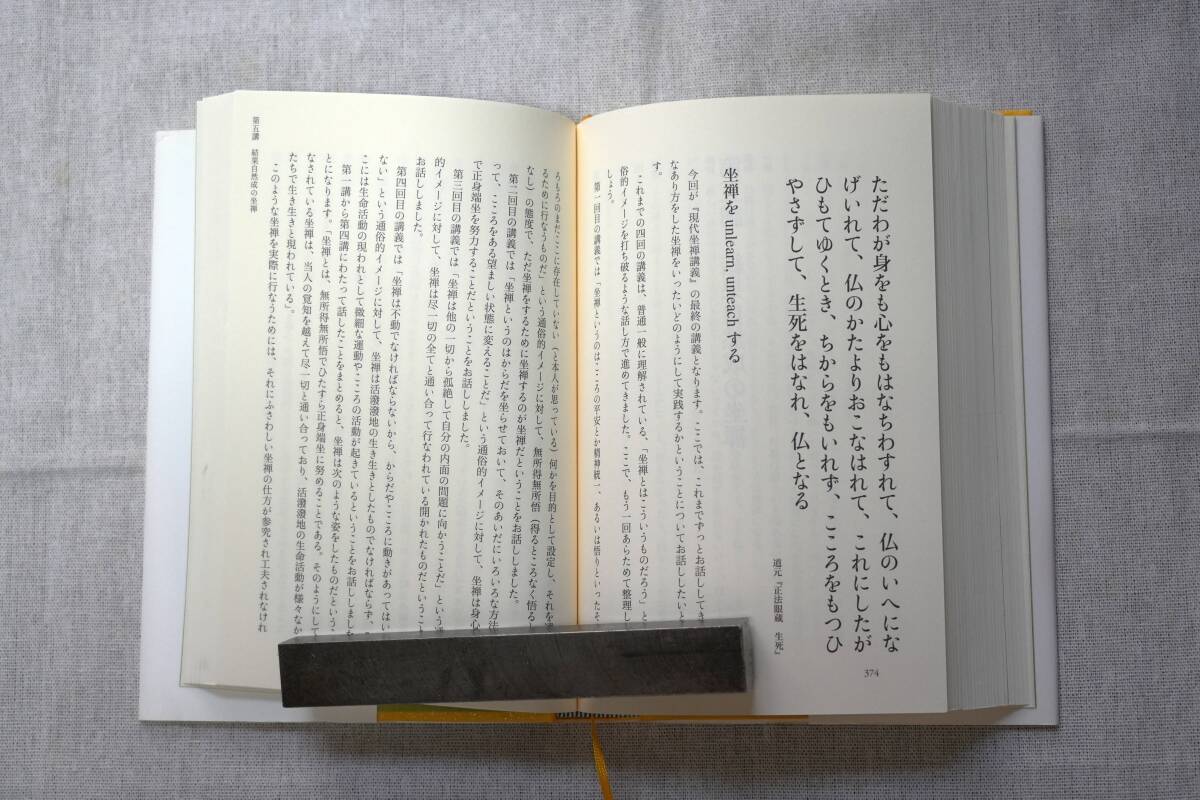 ただわが身をも心をもはなちわすれて、仏のいへにな
げいれて、仏のかたよりおこなはれて、これにしたが
ひもてゆくとき、ちからをもいれず、こころをもつひ
やさずして、生死をはなれ、仏となる
道元『正法眼蔵 生死』
坐禅を unlearn, unteach する
今回が『現代坐禅講義』の最終の講義となります。ここでは、これまでずっとお話ししてき
なあり方をした坐禅をいったいどのようにして実践するかということについてお話ししたいと
す。
これまでの四回の講義は、普通一般に理解されている、「坐禅とはこういうものだろう」と
俗的イメージを打ち破るような話し方で進めてきました。ここで、もう一回あらためて整理し
しょう。
第一回目の講義では「坐禅というのはこころの平安とか精神統一、あるいは悟りといったそ
374
ろもろのまだここに存在していない（と本人が思っている）何かを目的として設定し、それを
るために行なうものだ」という通俗的イメージに対して、無所得無所悟（得るところなく悟る
なし）の態度で、ただ坐禅をするために坐禅するのが坐禅だということをお話ししました。
第二回目の講義では「坐禅というのはからだを坐らせておいて、そのあいだにいろいろな方法
って、こころをある望ましい状態に変えることだ」という通俗的イメージに対して、坐禅は身心
で正身端坐を努力することだということをお話ししました。
第三回目の講義では「坐禅は他の一切から孤絶して自分の内面の問題に向かうことだ」という
的イメージに対して、坐禅は尽一切の全てと通い合って行なわれている開かれたものだということ
お話ししました。
第四回目の講義では「坐禅は不動でなければならないから、からだやこころに動きがあってはい
ない」という通俗的イメージに対して、坐禅は活潑潑地の生き生きとしたものでなければならず、
こには生命活動の現われとして微細な運動やこころの活動が起きているということをお話ししまし
第一講から第四講にわたって話したことをまとめると、坐禅は次のような姿をしたものだという
とになります。「坐禅とは、無所得無所悟でひたすら正身端坐に努めることである。そのようにして
なされている坐禅は、当人の覚知を越えて尽一切と通い合っており、活潑潑地の生命活動が様々なか
たちで生き生きと現われている」。
このような坐禅を実際に行なうためには、それにふさわしい坐禅の仕方が参究され工夫されなけれ
第五講 結果自然成の坐禅